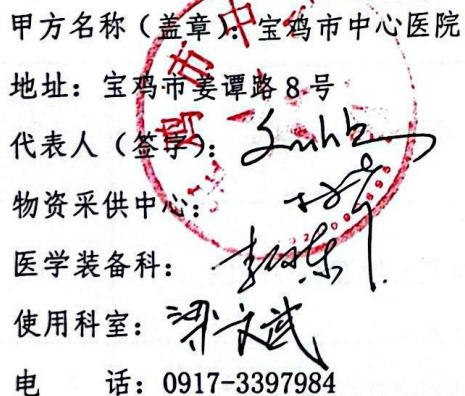 甲方名称（盖章）：宝鸡市中心医院
地址：宝鸡市姜谭路8号
代表人（签字）：
物资采供中心：
医学装备科：
使用科室：梁文斌
电 话：0917-3397984